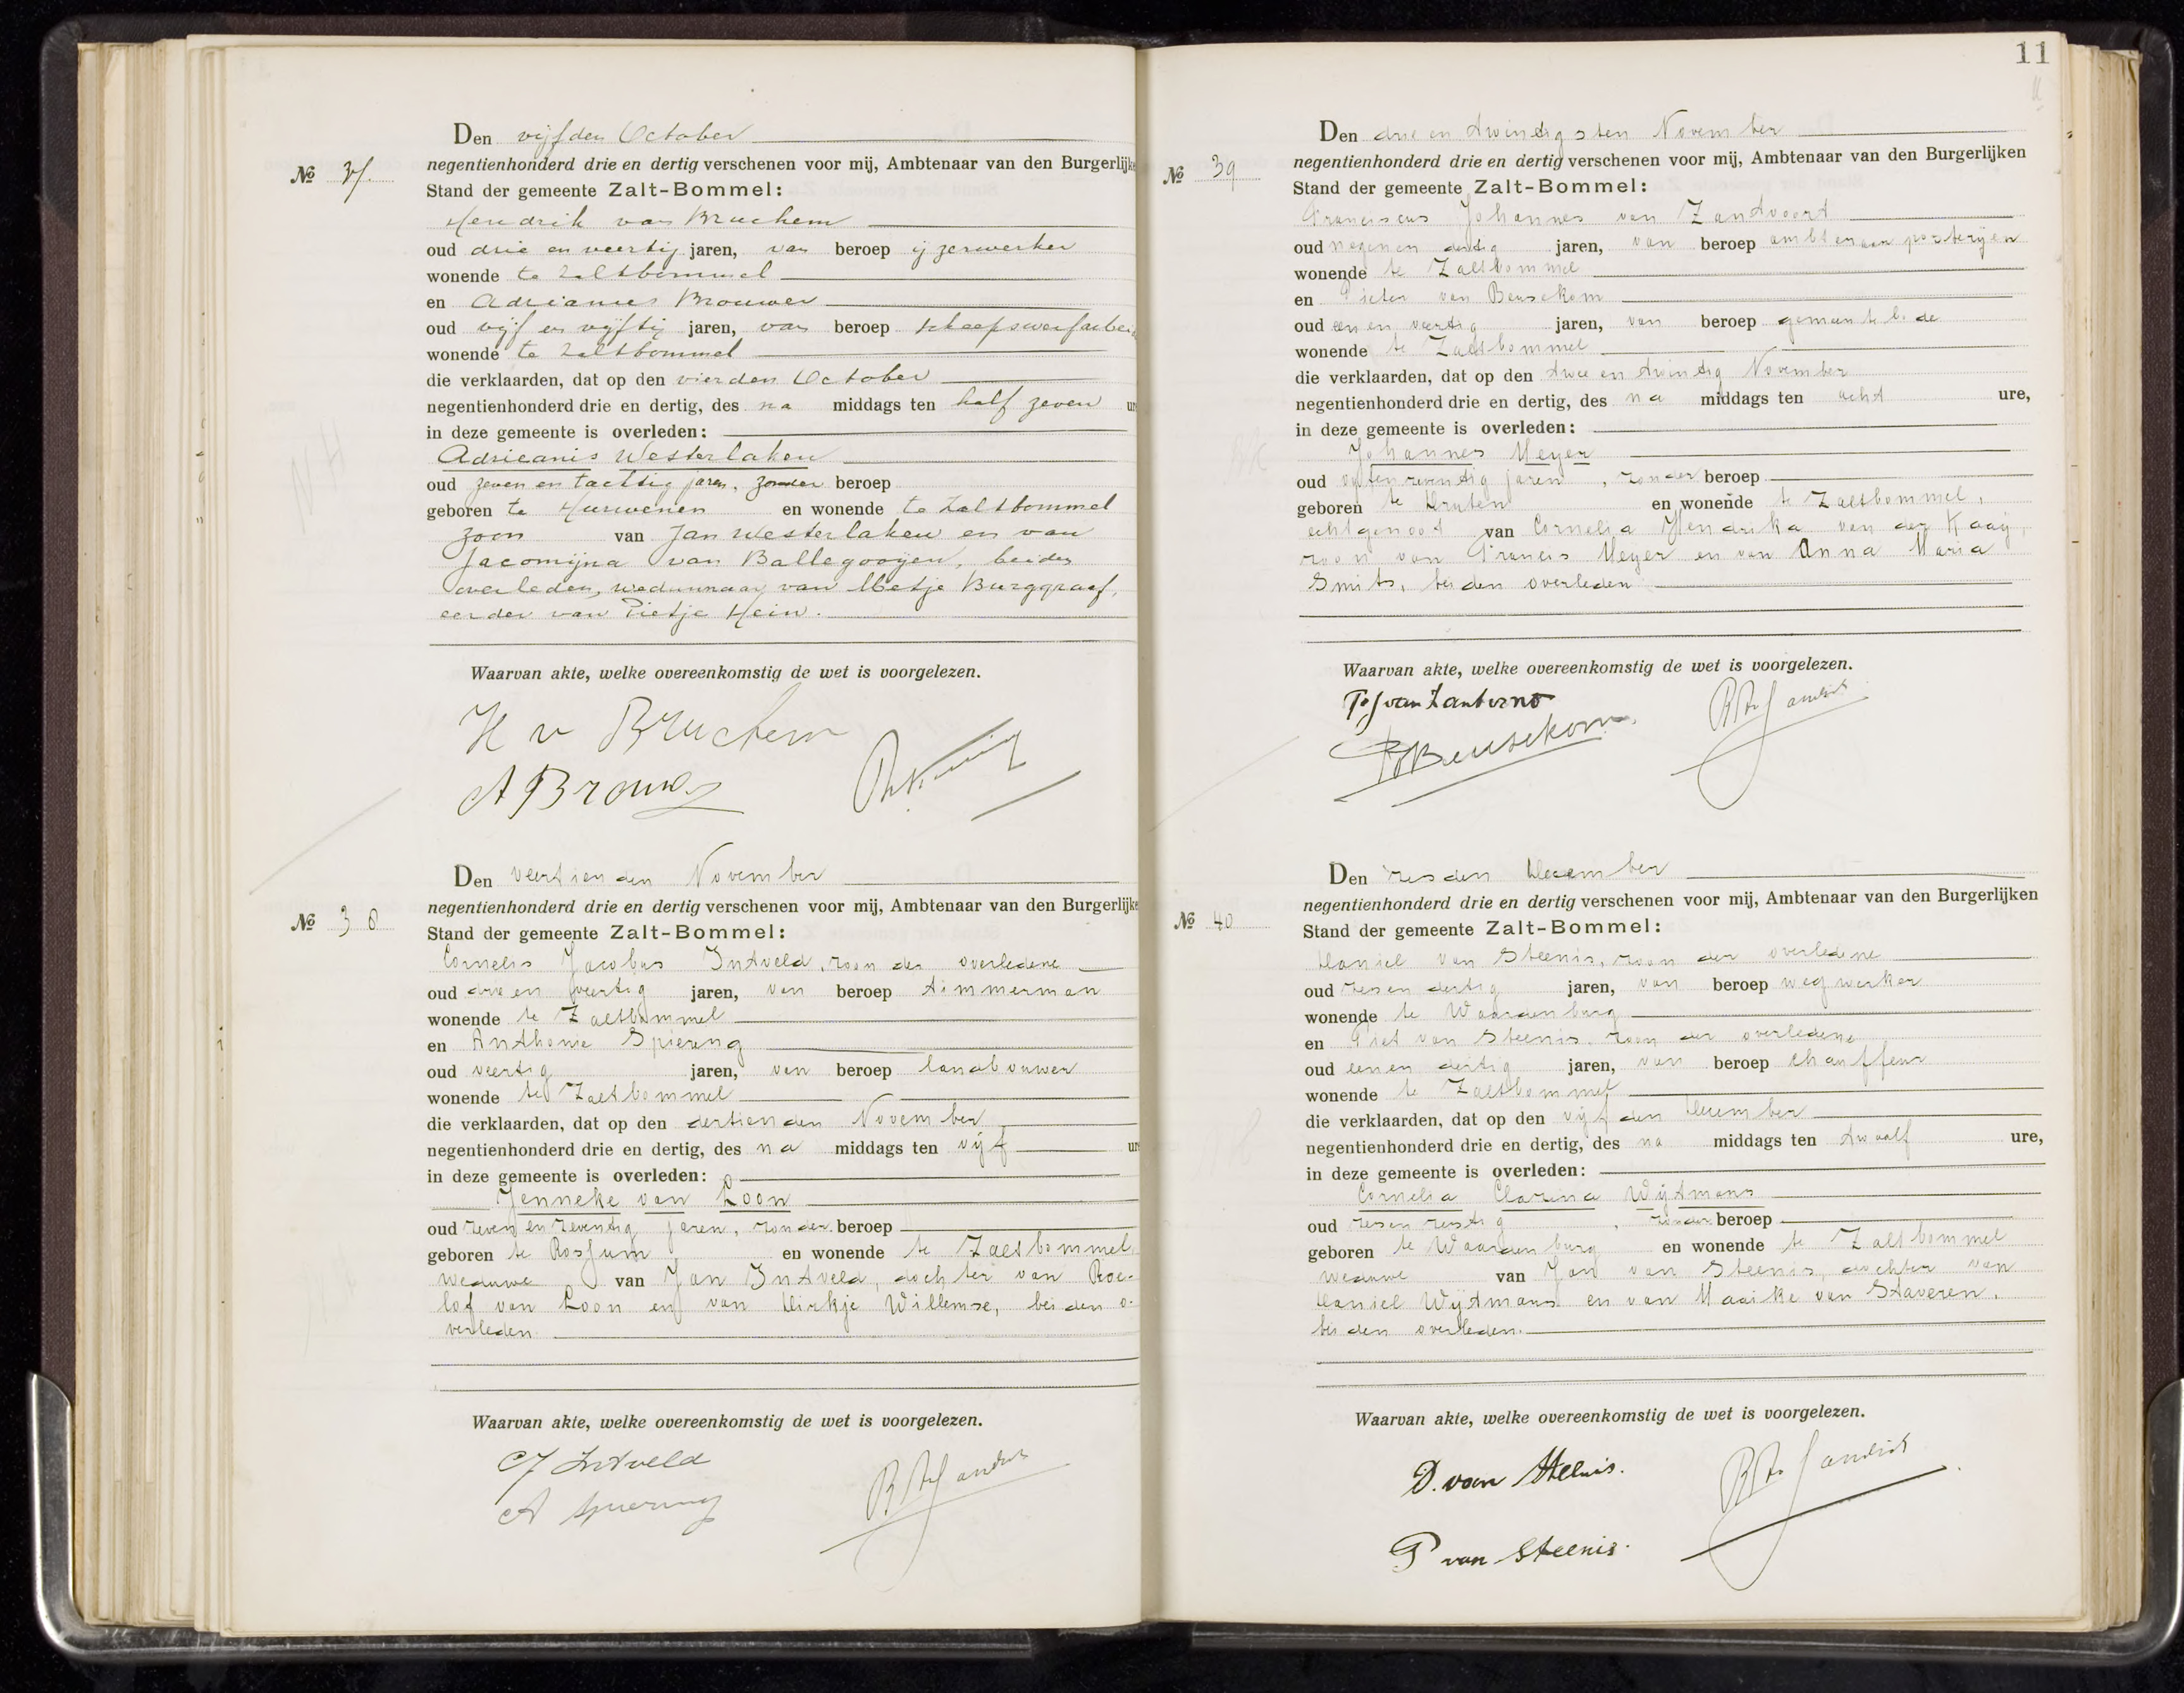 Den vijfden October
negentienhonderd drie en dertig verschenen voor mij, Ambtenaar van den Burgerlijke
No 37.
Stand der gemeente Zalt-Bommel:
Hendrik van Bruchem
oud drie en veertig jaren, van beroep ijzerwerker
wonende te Zaltbommel
en Adrianus Brouwer
oud vijf en vijftig jaren, van beroep scheepswerfarbei
wonende te Zaltbommel
die verklaarden, dat op den vierden October
negentienhonderd drie en dertig, des na middags ten half zeven ur
in deze gemeente is overleden:
Adrieanis Westerlaken
oud zeven en tachtig jaren, zonder beroep
geboren te Hurwenen en wonende te Zaltbommel
zoon van Jan Westerlaken en van
Jacomijna van Ballegooijen, beiden
overleden, weduwnaar van Metje Burggraaf,
eerder van Pietje Hein.
Waarvan akte, welke overeenkomstig de wet is voorgelezen.
H v Bruchem
A Brouwer
Den veertienden November
negentienhonderd drie en dertig verschenen voor mij, Ambtenaar van den Burgerlijke
No 38
Stand der gemeente Zalt-Bommel:
Cornelis Jacobus Intveld, zoon der overledene
oud drie en veertig jaren, van beroep timmerman
wonende te Zaltbommel
en Anthonie Spiering
oud veertig jaren, van beroep landbouwer
wonende te Zaltbommel
die verklaarden, dat op den dertienden November
negentienhonderd drie en dertig, des na middags ten vijf ur
in deze gemeente is overleden:
Jenneke van Loon
oud zeven en zeventig jaren, zonder beroep
geboren te Rossum en wonende te Zaltbommel,
weduwe van Jan Intveld, dochter van Roe-
lof van Loon en van Dirkje Willemse, beiden o-
verleden.
Waarvan akte, welke overeenkomstig de wet is voorgelezen.
CJ Intveld
A Spiering
11
11
Den drie en twintigsten November
negentienhonderd drie en dertig verschenen voor mij, Ambtenaar van den Burgerlijken
No 39
Stand der gemeente Zalt-Bommel:
Franciscus Johannes van Zantvoort
oud negen en dertig jaren, van beroep ambtenaar posterijen
wonende te Zaltbommel
en Pieter van Beusekom
oud een en veertig jaren, van beroep gemeentebode
wonende te Zaltbommel
die verklaarden, dat op den twee en twintig November
negentienhonderd drie en dertig, des na middags ten acht ure,
in deze gemeente is overleden:
Johannes Meyer
oud vijf en zeventig jaren, zonder beroep
geboren te Druten en wonende te Zaltbommel,
echtgenoot van Cornelia Hendrika van der Kaaij,
zoon van Francis Meyer en van Anna Maria
Smits, beiden overleden
Waarvan akte, welke overeenkomstig de wet is voorgelezen.
PvBeusekom
Den zesden December
negentienhonderd drie en dertig verschenen voor mij, Ambtenaar van den Burgerlijken
No 40
Stand der gemeente Zalt-Bommel:
Daniel van Steenis, zoon der overledene
oud zes en dertig jaren, van beroep wegwerker
wonende te Waardenburg
en Piet van Steenis, zoon der overledene
oud een en dertig jaren, van beroep chauffeur
wonende te Zaltbommel
die verklaarden, dat op den vijfden December
negentienhonderd drie en dertig, des na middags ten twaalf ure,
in deze gemeente is overleden:
Cornelia Clazina Wijtmans
oud zes en zestig, zonder beroep
geboren te Waardenburg en wonende te Zaltbommel
weduwe van Jan van Steenis, dochter van
Daniel Wijtmans en van Maaike van Staveren,
beiden overleden.
Waarvan akte, welke overeenkomstig de wet is voorgelezen.
D. van Steenis.
P van Steenis.